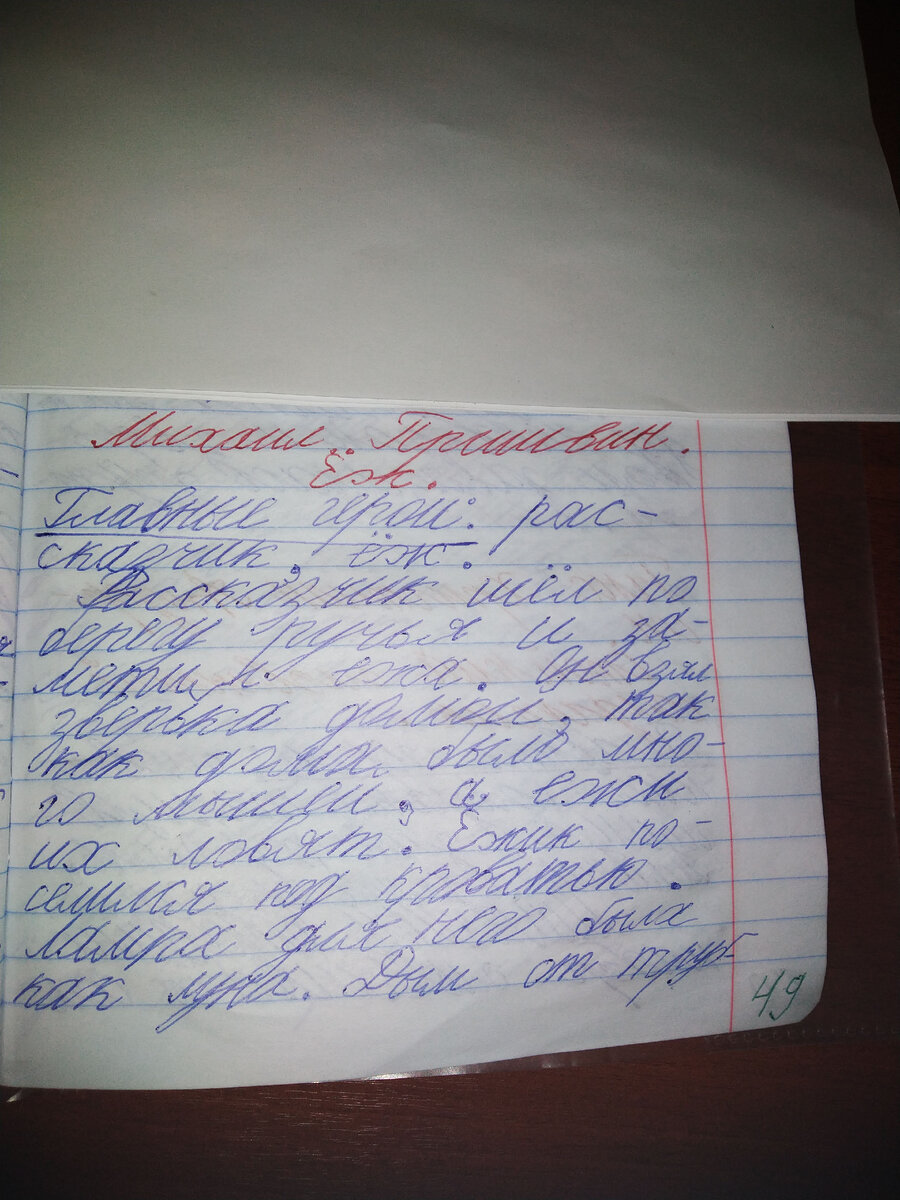 Михаил Пришвин.
Ёж.
Главные герои: рас-
сказчик, ёж.
Рассказчик шёл по
берегу ручья и за-
метил ежа. Он взял
зверька домой, так
как дома было мно-
го мышей, а ежи
их ловят. Ёжик по-
селился под кроватью.
Лампа для него была
как луна. Дым от труб-
49